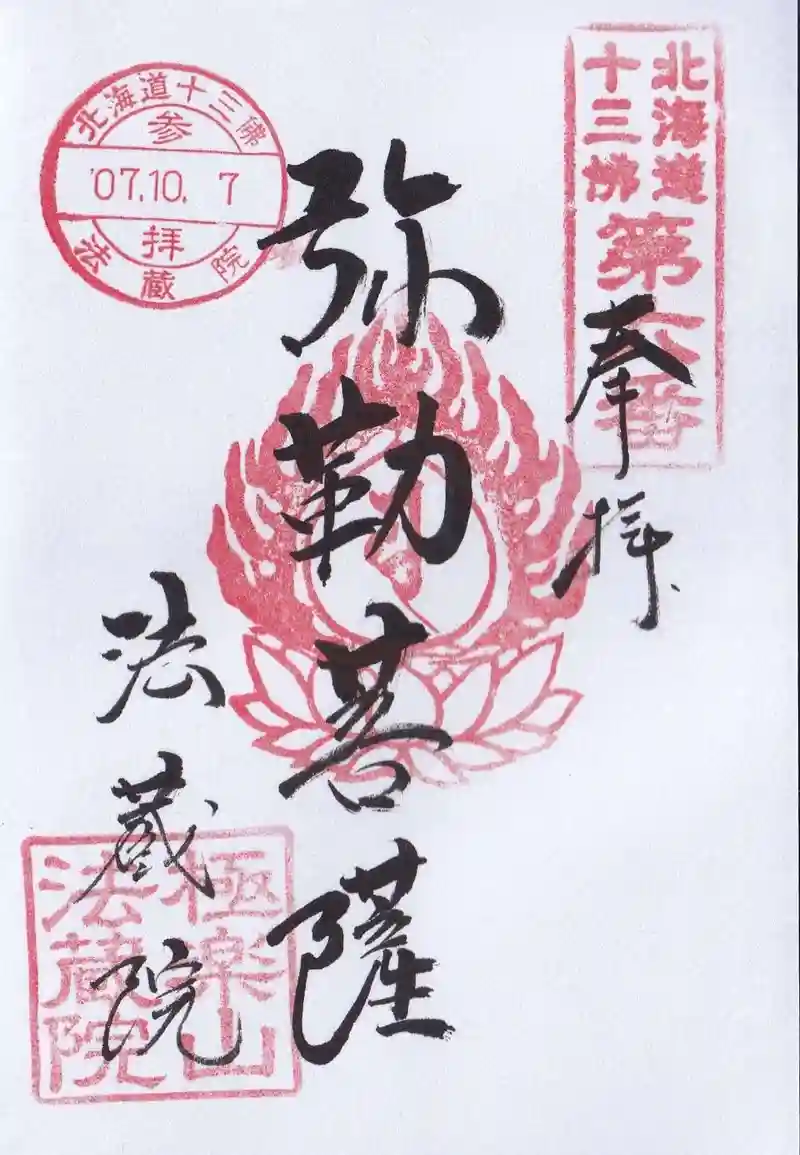 北海道
十三佛
第六番
奉拝
弥勒菩薩
法蔵院
北海道十三佛
参
'07.10. 7
拝
法蔵院
極楽山
法蔵院